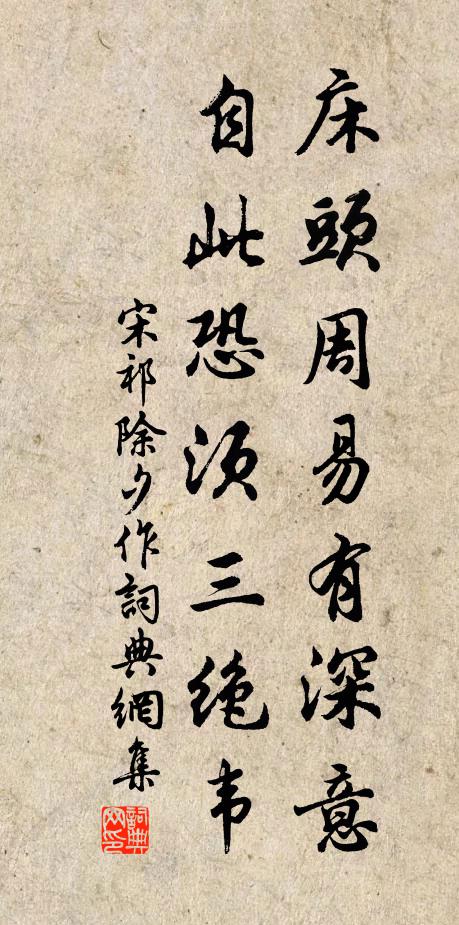 床頭周易有深意
自此恐須三絶韦
宋祁除夕作詞典網集
詞典网印